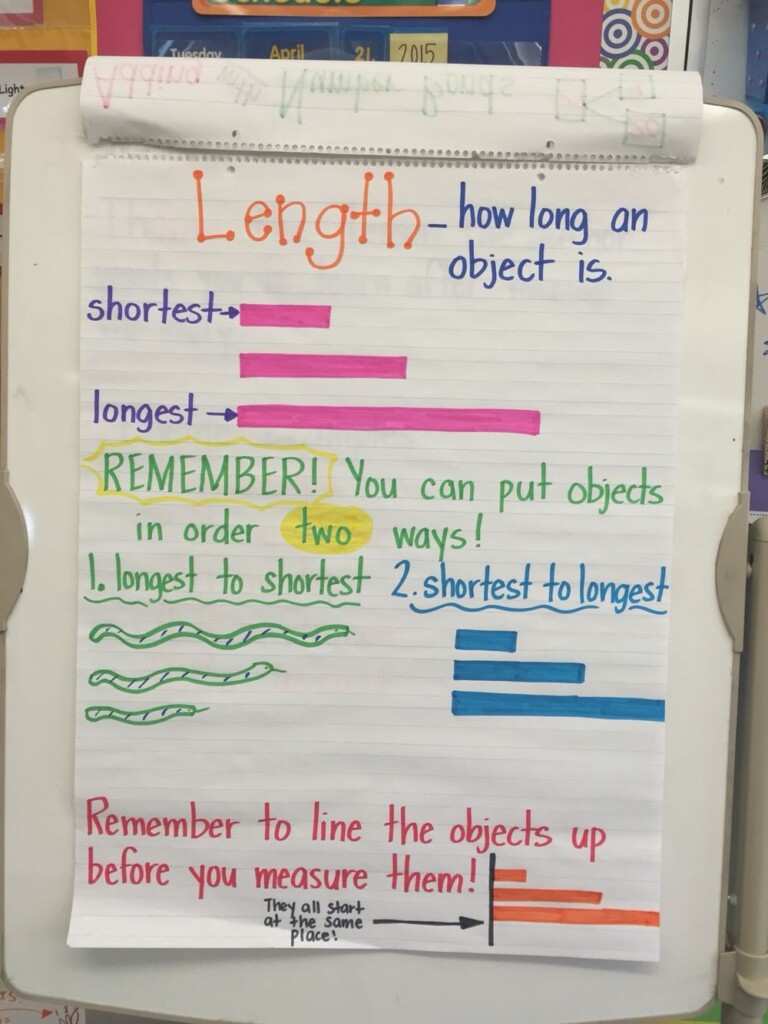 Schedule
Tuesday April 21 2015
Light
Adding with Number Bonds
Length - how long an
object is.
shortest
longest
REMEMBER! You can put objects
in order two ways!
1. longest to shortest 2. shortest to longest
Remember to line the objects up
before you measure them!
They all start
at the same
place!